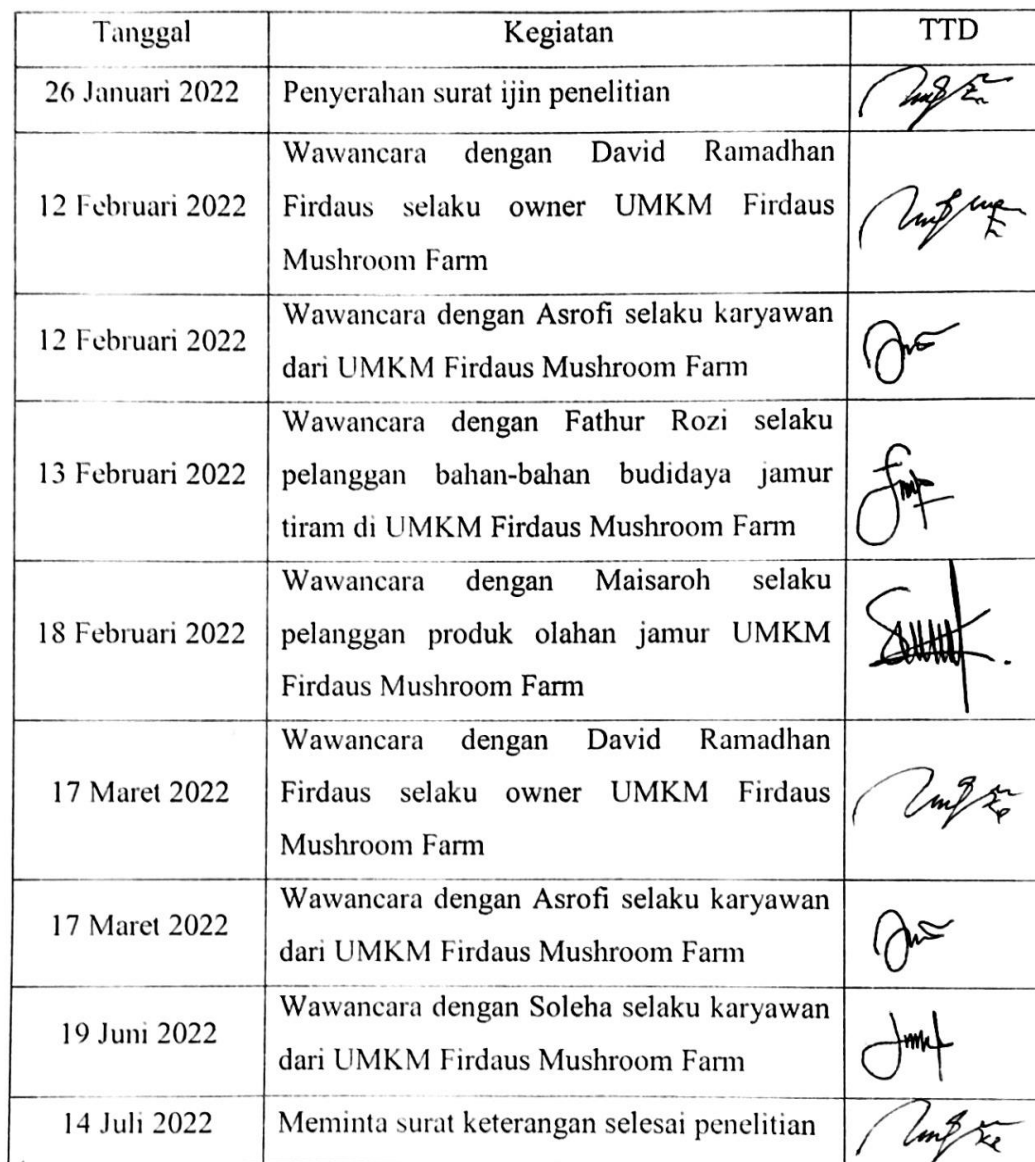 Tanggal Kegiatan TTD
26 Januari 2022 Penyerahan surat ijin penelitian
Wawancara dengan David Ramadhan
12 Februari 2022 Firdaus selaku owner UMKM Firdaus
Mushroom Farm
12 Februari 2022 Wawancara dengan Asrofi selaku karyawan
dari UMKM Firdaus Mushroom Farm
Wawancara dengan Fathur Rozi selaku
13 Februari 2022 pelanggan bahan-bahan budidaya jamur
tiram di UMKM Firdaus Mushroom Farm
Wawancara dengan Maisaroh selaku
18 Februari 2022 pelanggan produk olahan jamur UMKM
Firdaus Mushroom Farm
Wawancara dengan David Ramadhan
17 Maret 2022 Firdaus selaku owner UMKM Firdaus
Mushroom Farm
17 Maret 2022 Wawancara dengan Asrofi selaku karyawan
dari UMKM Firdaus Mushroom Farm
19 Juni 2022 Wawancara dengan Soleha selaku karyawan
dari UMKM Firdaus Mushroom Farm
14 Juli 2022 Meminta surat keterangan selesai penelitian